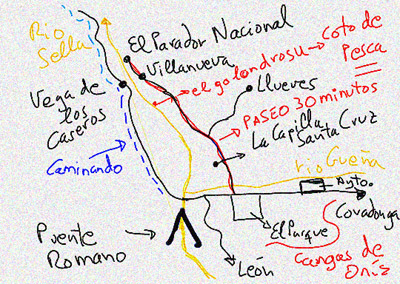 Rio
Sella
El Parador Nacional
Villanueva
el golondrosu
Coto de
Pesca
Llueves
Vega de
los
Caseros
PASEO 30 minutos
La Capilla
Santa Cruz
Caminando
rio Gueña
Ayto.
Covadonga
El Parque
Puente
Romano
León
Cangas de
Onís